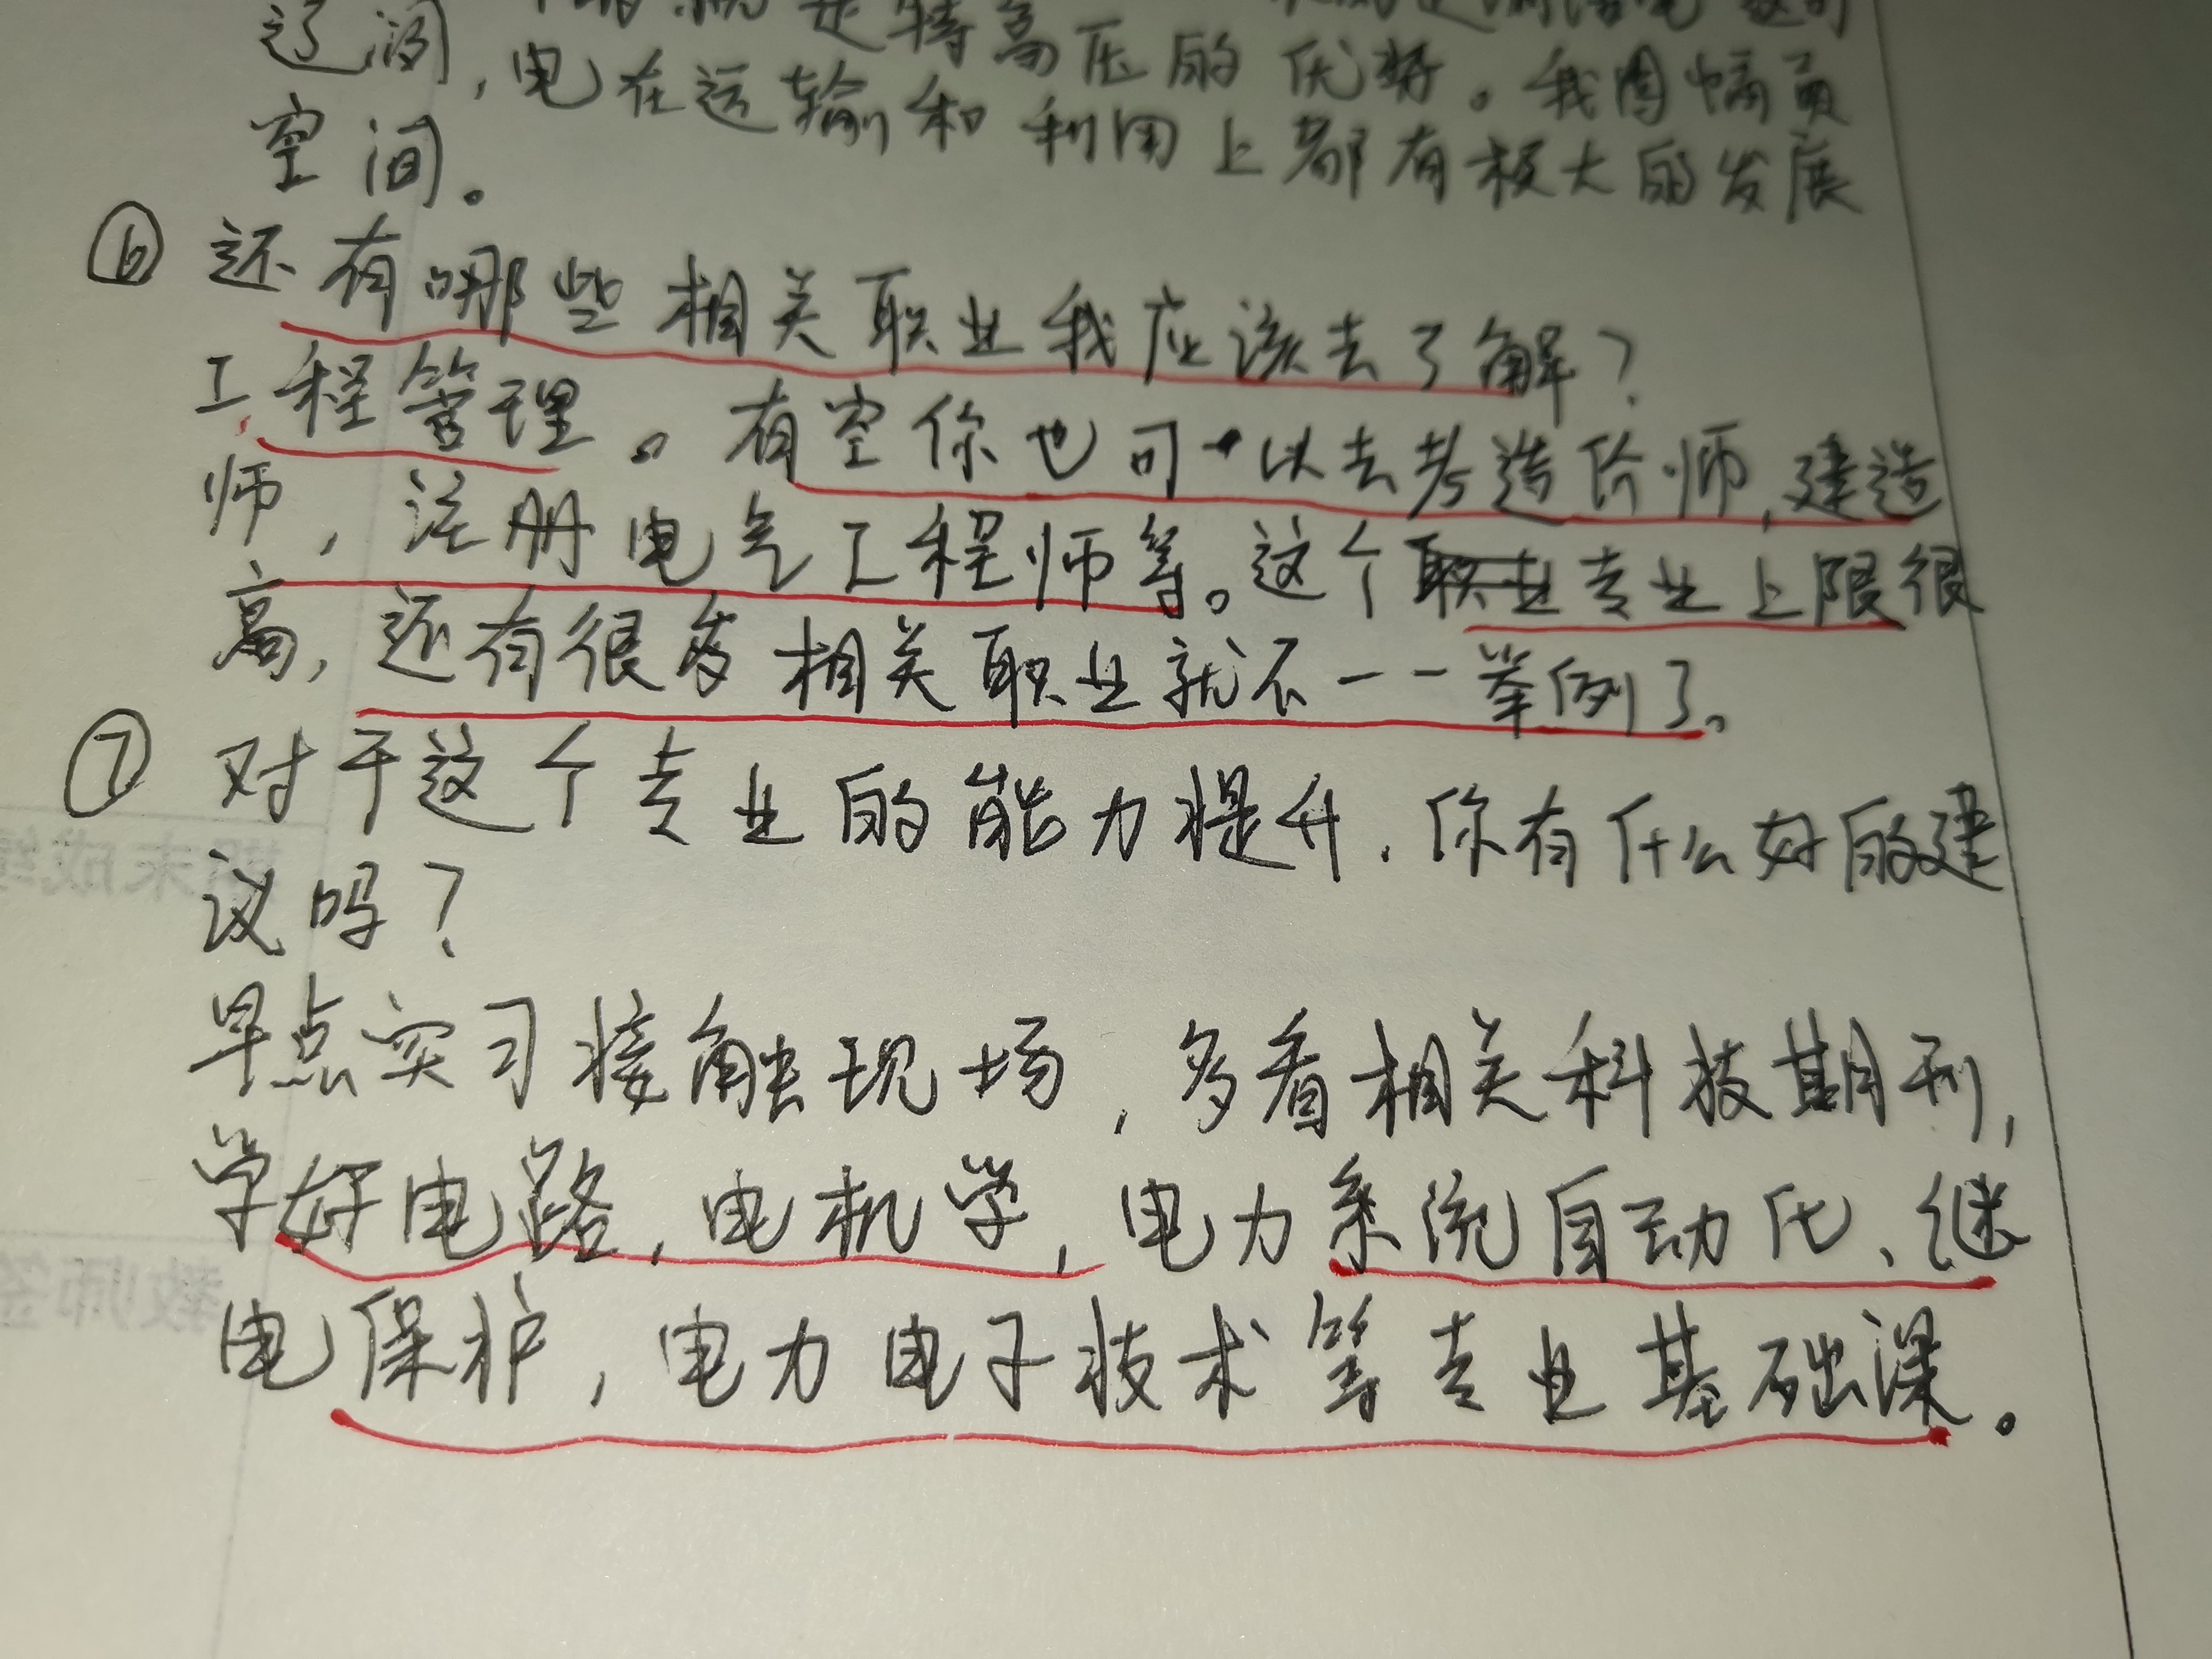 是特高压的优势。我国幅员
辽阔，电在运输和利用上都有极大的发展
空间。
⑥ 还有哪些相关职业我应该去了解？
工程管理。有空你也可以去考造价师，建造
师，注册电气工程师等。这个职业专业上限很
高，还有很多相关职业就不一一举例了。
⑦ 对于这个专业的能力提升，你有什么好的建
议吗？
早点实习接触现场，多看相关科技期刊，
学好电路，电机学，电力系统自动化、继
电保护，电力电子技术等专业基础课。
期末成绩
教师签